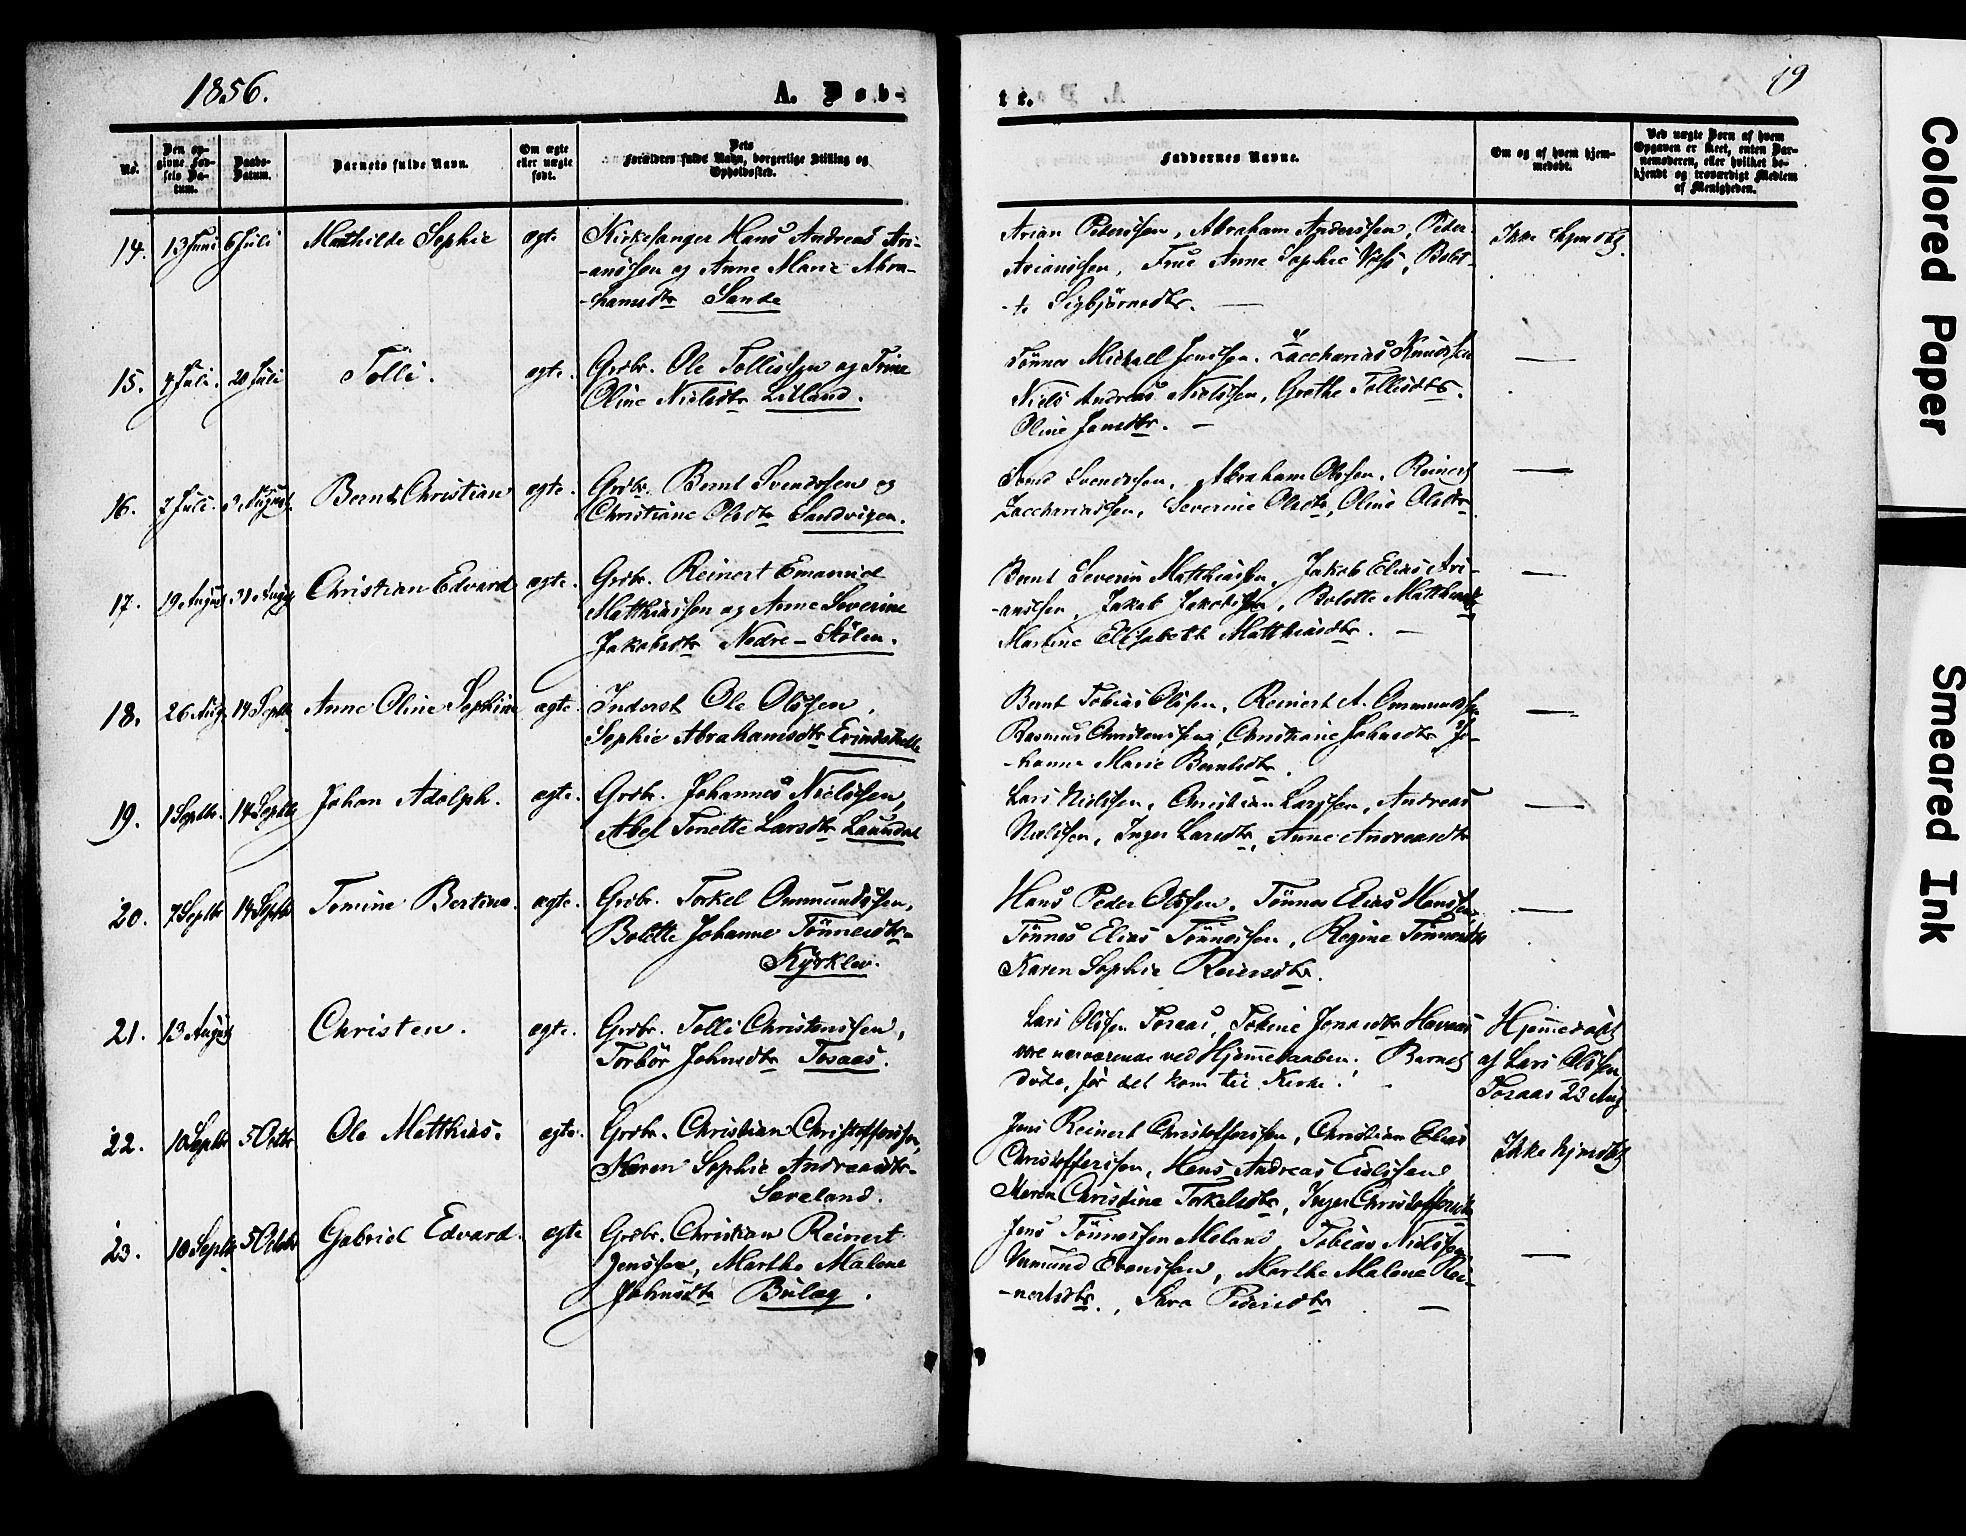 1856.
A. Døb-
te.
19
No.
Den opgivne Fødsels Datum.
Daabs-Datum.
Barnets fulde Navn.
Om ægte eller uægte født.
Dets Forældres fulde Navn, borgerlige Stilling og Opholdssted.
Faddernes Navne.
Om og af hvem hjemmedøbt.
Ved uægte Børn af hvem Opgaven er skeet, enten Barnemoderen, eller hvilket bekjendt og troværdigt Medlem af Menigheden.
14. 13 Juni 6 Juli Mathilde Sophie ægte
Kirkesanger Hans Andreas Ari-
-anssen og Anne Marie Abra-
-hamsdtr Sande
Arian Pederssen, Abraham Anderssen, Peder
Arianssen, Frue Anne Sophie Voss, Bolet-
-te Sigbjørnsdtr. —
Ikke hjmdbt.
15. 4 Juli. 20 Juli Tolli. ægte.
Grdbr. Ole Tollissen og Trine
Oline Nielsdtr Litland.
Tönnes Michaell Jenssen, Zaccharias Knudssen
Niels Andreas Nielssen, Grethe Tollisdtr.
Oline Jansdtr. —
—
16. 7 Juli. 3 August. Bernt Christian ægte.
Grdbr. Bernt Svendssen og
Christiane Olsdtr Sandvigen.
Svend Svendssen, Abraham Olssen, Reinert
Zacchariassen, Severine Olsdtr, Oline Olsdtr
—
17. 19 August 31 Augst Christian Edvard ægte.
Grdbr. Reinert Emanuel
Matthiassen og Anne Severine
Jakobsdtr Nedre-Stölen.
Bernt Severin Matthiassen, Jakob Elias Ari-
-anssen, Jakob Jakobssen, Bolette Matthiasdtr
Martine Elisabeth Matthiasdtr. —
—
18. 26 Aug. 14 Septbr Anne Oline Sophine ægte.
Inderst Ole Olssen,
Sophie Abrahamsdtr
Bernt Tobias Olssen, Reinert A. Ommundssen
Rasmus Christenssen, Christiane Johnsdtr Jo-
-hanne Marie Berntsdtr.
—
19. 1 Septbr. 14 Septbr Johan Adolph. ægte.
Grdbr. Johannes Nielssen,
Abel Tonette Larsdtr Laundal
Lars Nielssen, Christian Larssen, Andreas
Nielssen, Inger Larsdtr, Anne Andreasdtr
—
20. 7 Septbr 14 Septbr Tomine Bertine. ægte.
Grdbr. Torkel Ommundssen,
Bolette Johanne Tönnesdtr-
Kyrklev.
Hans Peder Olssen, Tönnes Elias Hanssen
Tönnes Elias Tönnessen, Regine Tönnesdtr
Karen Sophie Reiersdtr.
—
21. 13 August Christen. ægte.
Grdbr. Tolli Christenssen,
Torbör Johnsdtr Tosaas.
Lars Olssen Tosaas, Tomine Jonasdtr Haraas
vare nærværende ved Hjemedaaben. Barnet
døde, før det kom til Kirke. —
Hjemedøbt
af Lars Olssen
Tosaas 23 Aug.
22. 10 Septbr 5 Octbr. Ole Matthias. ægte.
Grdbr. Christian Christofferssen,
Karen Sophie Andreasdtr-
Særeland.
Jens Reinert Christofferssen, Christian Elias
Christofferssen, Hans Andreas Eielssen
Maren Christine Torkelsdtr, Inger Christoffersdtr
Ikke hjmdbt
23. 10 Septbr 5 Octobr Gabriel Edvard. ægte
Grdbr. Christian Reinert
Jenssen, Marthe Malene
Johnsdtr Búlæg.
Jens Tönnessen Meland Tobias Nielssen
Evenssen, Marthe Malene Rei-
-nertsdtr., Sara Pedersdtr —
—
Colored Paper
Smeared Ink